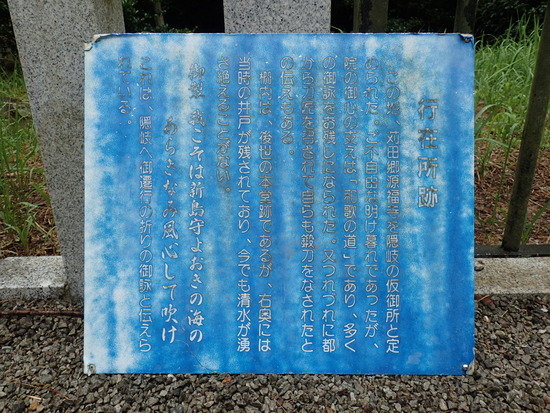 行在所跡
この地、苅田郷源福寺を隠岐の仮御所と定
められた。ご不自由な明け暮れであったが、
院の御心の支えは「和歌の道」であり、多く
の御詠をお残しになられた。又つれづれに都
から刀鍛を召されて自らも鍛刀をなされたと
の伝えもある。
柵内は、後世の本堂跡であるが、右奥には
当時の井戸が残されており、今でも清水が湧
き絶えることがない。
御製 我こそは新島守よおきの海の
あらきなみ風心して吹け
これは、隠岐へ御遷行の折りの御詠と伝えら
れている。